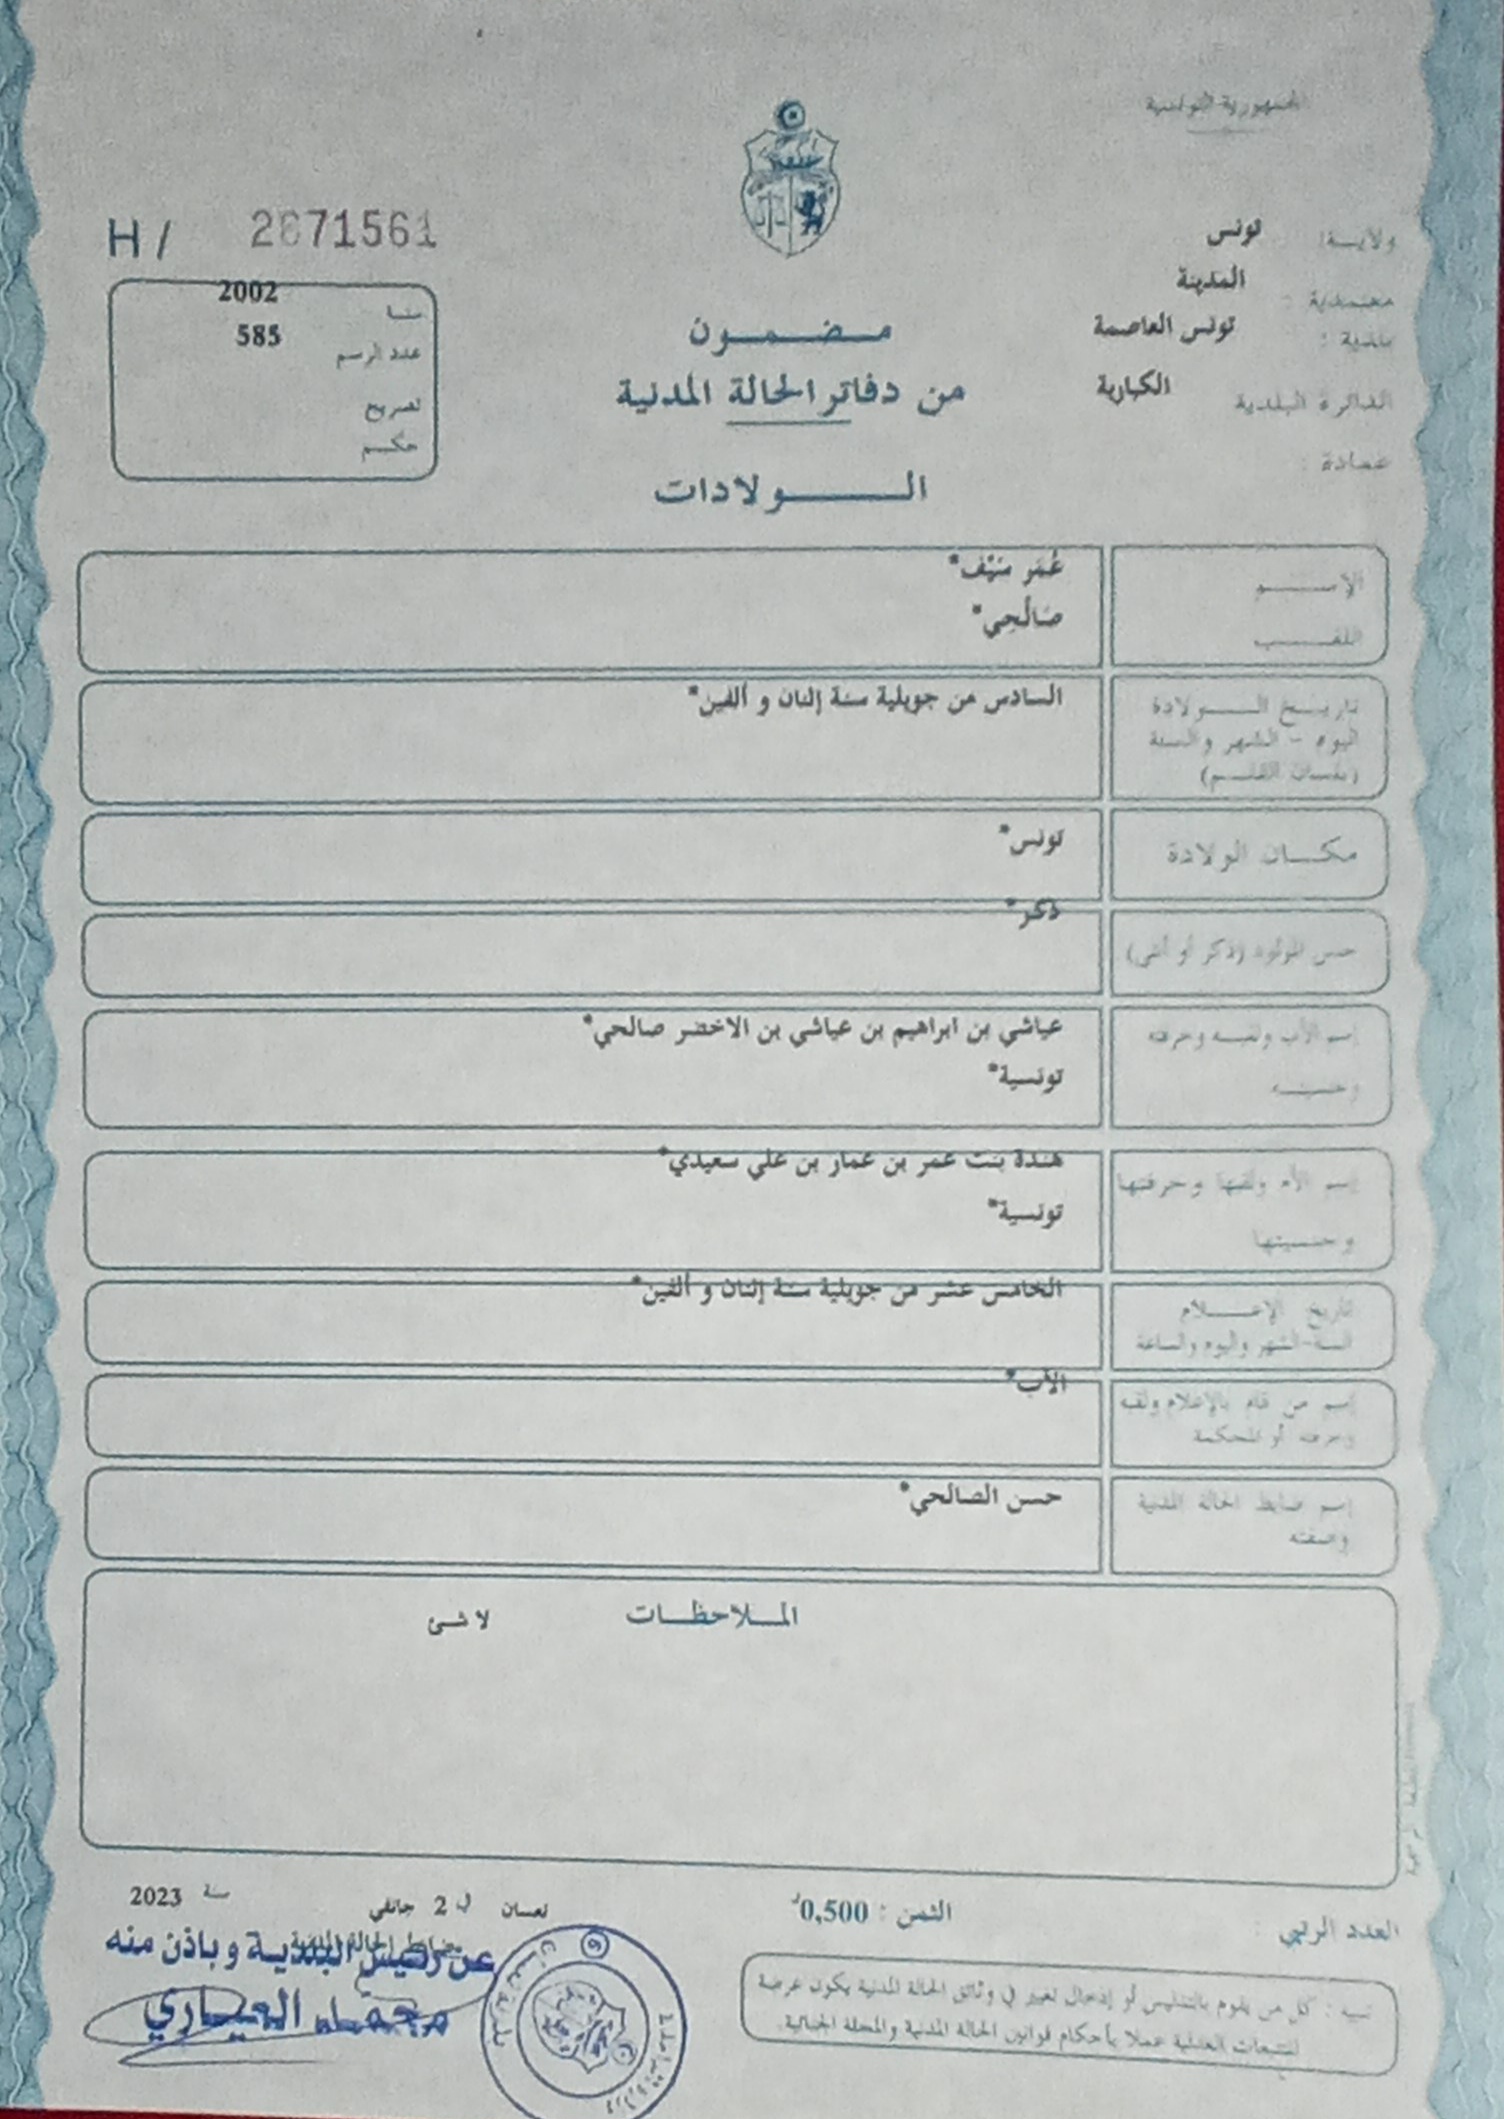 الجمهورية التونسية
ولايـة: تونس
معتمدية : المدينة
بلدية : تونس العاصمة
الدائرة البلدية الكبارية
عمادة :
H / 2671561
2002
سنـة
عدد الرسم 585
تصريح
حكـم
مـضـمـون
من دفاتر الحالة المدنية
الـولادات
الإسـم عُمَر سَيْف*
اللقـب صَالْحِي*
تاريـخ الـولادة السادس من جويلية سنة إثنان و ألفين*
اليوم - الشهر والسنة
(بلسان القلـم)
مكـان الولادة تونس*
جنس المولود (ذكر أو أنثى) ذكر*
إسم الأب ولقبـه وحرفته عياشي بن ابراهيم بن عياشي بن الاخضر صالحي*
وجنسيتـه تونسية*
إسم الأم ولقبها وحرفتها هندة بنت عمر بن عمار بن علي سعيدي*
وجنسيتها تونسية*
تاريخ الإعـلام الخامس عشر من جويلية سنة إثنان و ألفين*
السنة-الشهر واليوم والساعة
إسم من قام بالإعلام ولقبه الأب*
وحرفته أو المحكمة
إسم ضابط الحالة المدنية حسن الصالحي*
وصفته
المـلاحظـات لا شئ
العدد الرتبي :
الثمن : 0,500د
نعسان في 2 جانفي سنة 2023
ضابط الحالة المدنية
عن رئيس البلدية وباذن منه
محمد العياري
تنبيه : كل من يقوم بالتدليس أو إدخال تغيير في وثائق الحالة المدنية يكون عرضة
للتتبعات العدلية عملا بأحكام قوانين الحالة المدنية والمجلة الجنائية.